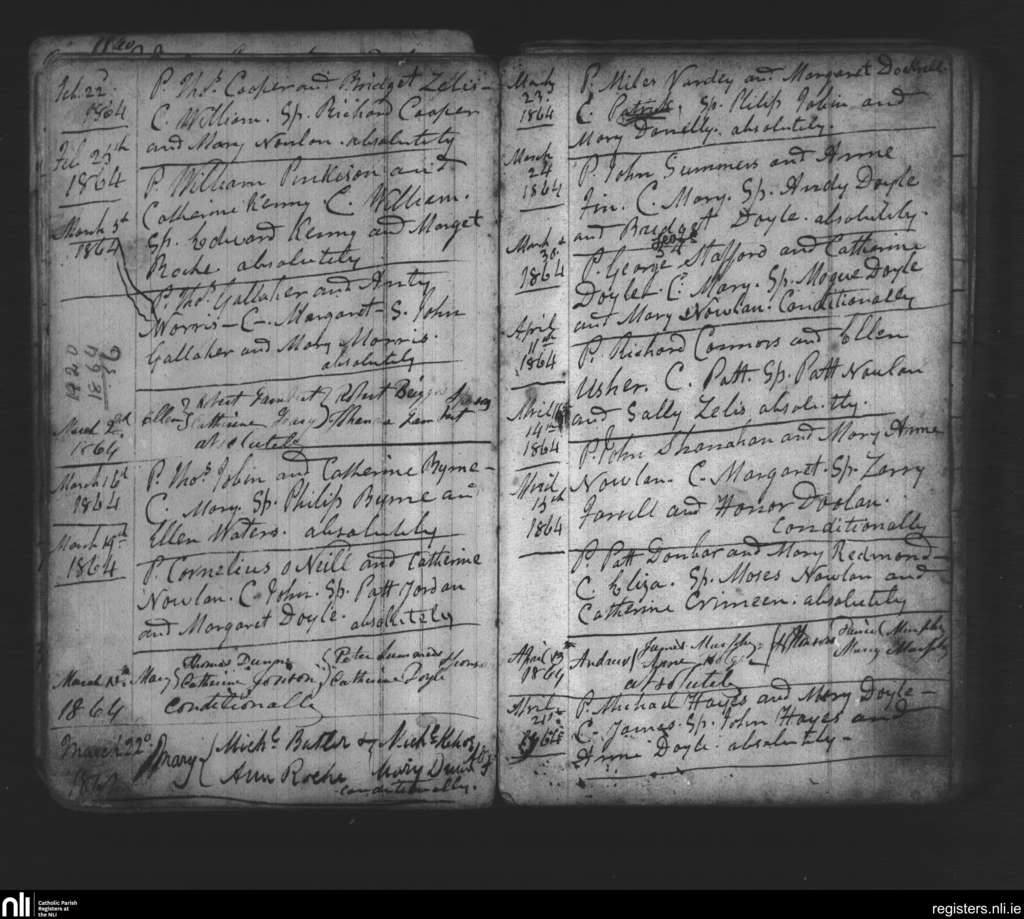 1840
Feb. 22
1864
P. Thos. Cooper and Bridget Zelis -
C. William. Sp. Richard Cooper
and Mary Nowlan. absolutely
Feb 25th
1864
P. William Pinkison and
Catherine Kenny. C. William.
Sp. Edward Kenny and Marget
Roche. absolutely
March 5th
1864
P. Thos. Gallaher and Anty
Morris - C - Margaret - S. John
Gallaher and Mary Morris.
absolutely
1864
March 2nd
1864
Ellen Robert Robert
Catherine
absolutely
March 16th
1864
P. Thos. Tobin and Catherine Byrne -
C. Mary. Sp. Philip Byrne an
Ellen Waters. absolutely
March 19th
1864
P. Cornelius o Neill and Catherine
Nowlan. C. John. Sp. Patt Jordan
and Margaret Doyle. absolutely
March
1864
Mary Thomas Peter sponsors
Catherine Catherine Doyle
conditionally
March 22o.
Mary Michl. Butler & Michl.
Ann Roche Mary
conditionally.
March
23.
1864
P. Miles Vardey and Margaret Dockrell
C. Patrick. Sp. Philip Tobin and
Mary Donelly. absolutely.
March
24
1864
P. John Summers and Anne
Fin. C. Mary. Sp. Andy Doyle
and Bridget Doyle. absolutely.
March
30.
1864
George
P. George Stafford and Catherine
Doyle - C. Mary. Sp. Mogue Doyle
and Mary Nowlan. Conditionally
April
11th
1864
P. Richard Connors and Ellen
Usher. C. Patt. Sp. Patt Nowlan
and Sally Zelis absolutly.
April
14th
1864
P. John Shanahan and Mary Anne
Nowlan. C. Margaret. Sp. Larry
Farrell and Honor Doolan.
conditionally
April
15th
1864
P. Patt Dunbar and Mary Redmond -
C. Eliza. Sp. Moses Nowlan and
Catherine Crimeen. absolutely
April
1864
Andrew James Murphy Sponsors Daniel Murphy
Anne Mary Murphy
absolutely
April
21st
1864
P. Michael Hayes and Mary Doyle -
C. James. Sp. John Hayes and
Anne Doyle. absolutely -
nli
Catholic Parish
Registers at
the NLI
registers.nli.ie